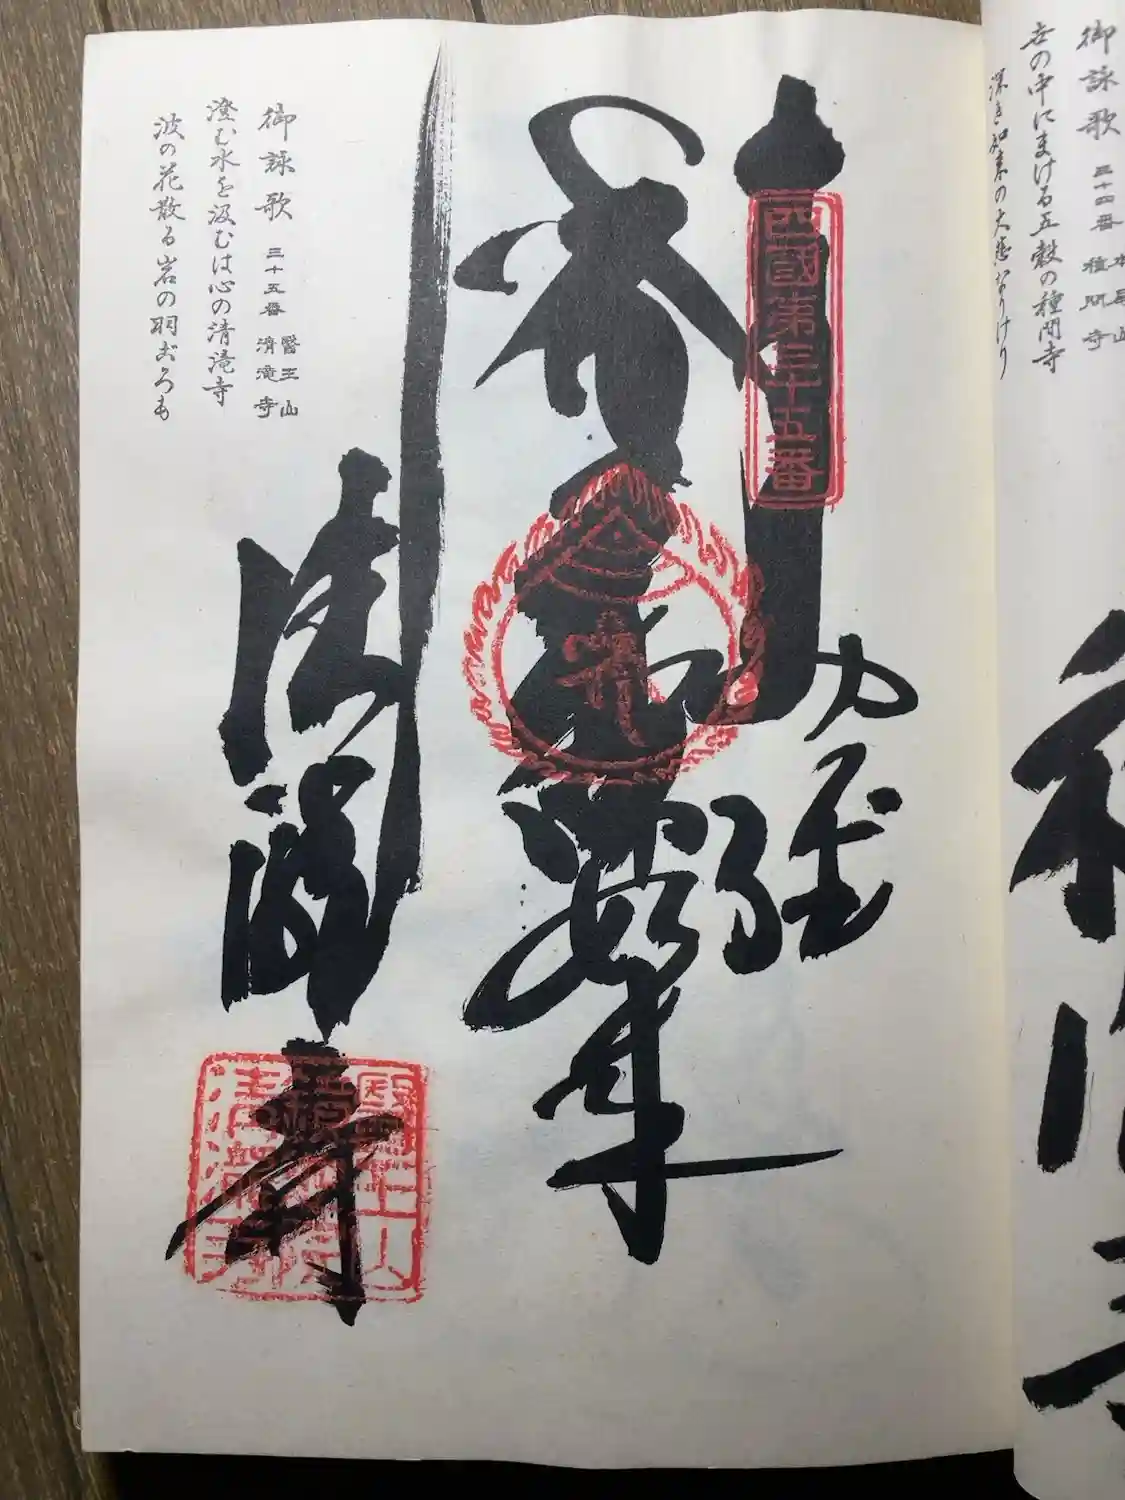 御詠歌 三十四番 本尾山 種間寺
世の中にまける五穀の種間寺
深き如来の大悲なりけり
四國第三十五番
奉納経
本尊薬師如来
清瀧寺
醫王山
清瀧寺
御詠歌 三十五番 醫王山 清滝寺
澄む水を汲むは心の清滝寺
波の花散る岩の羽ごろも